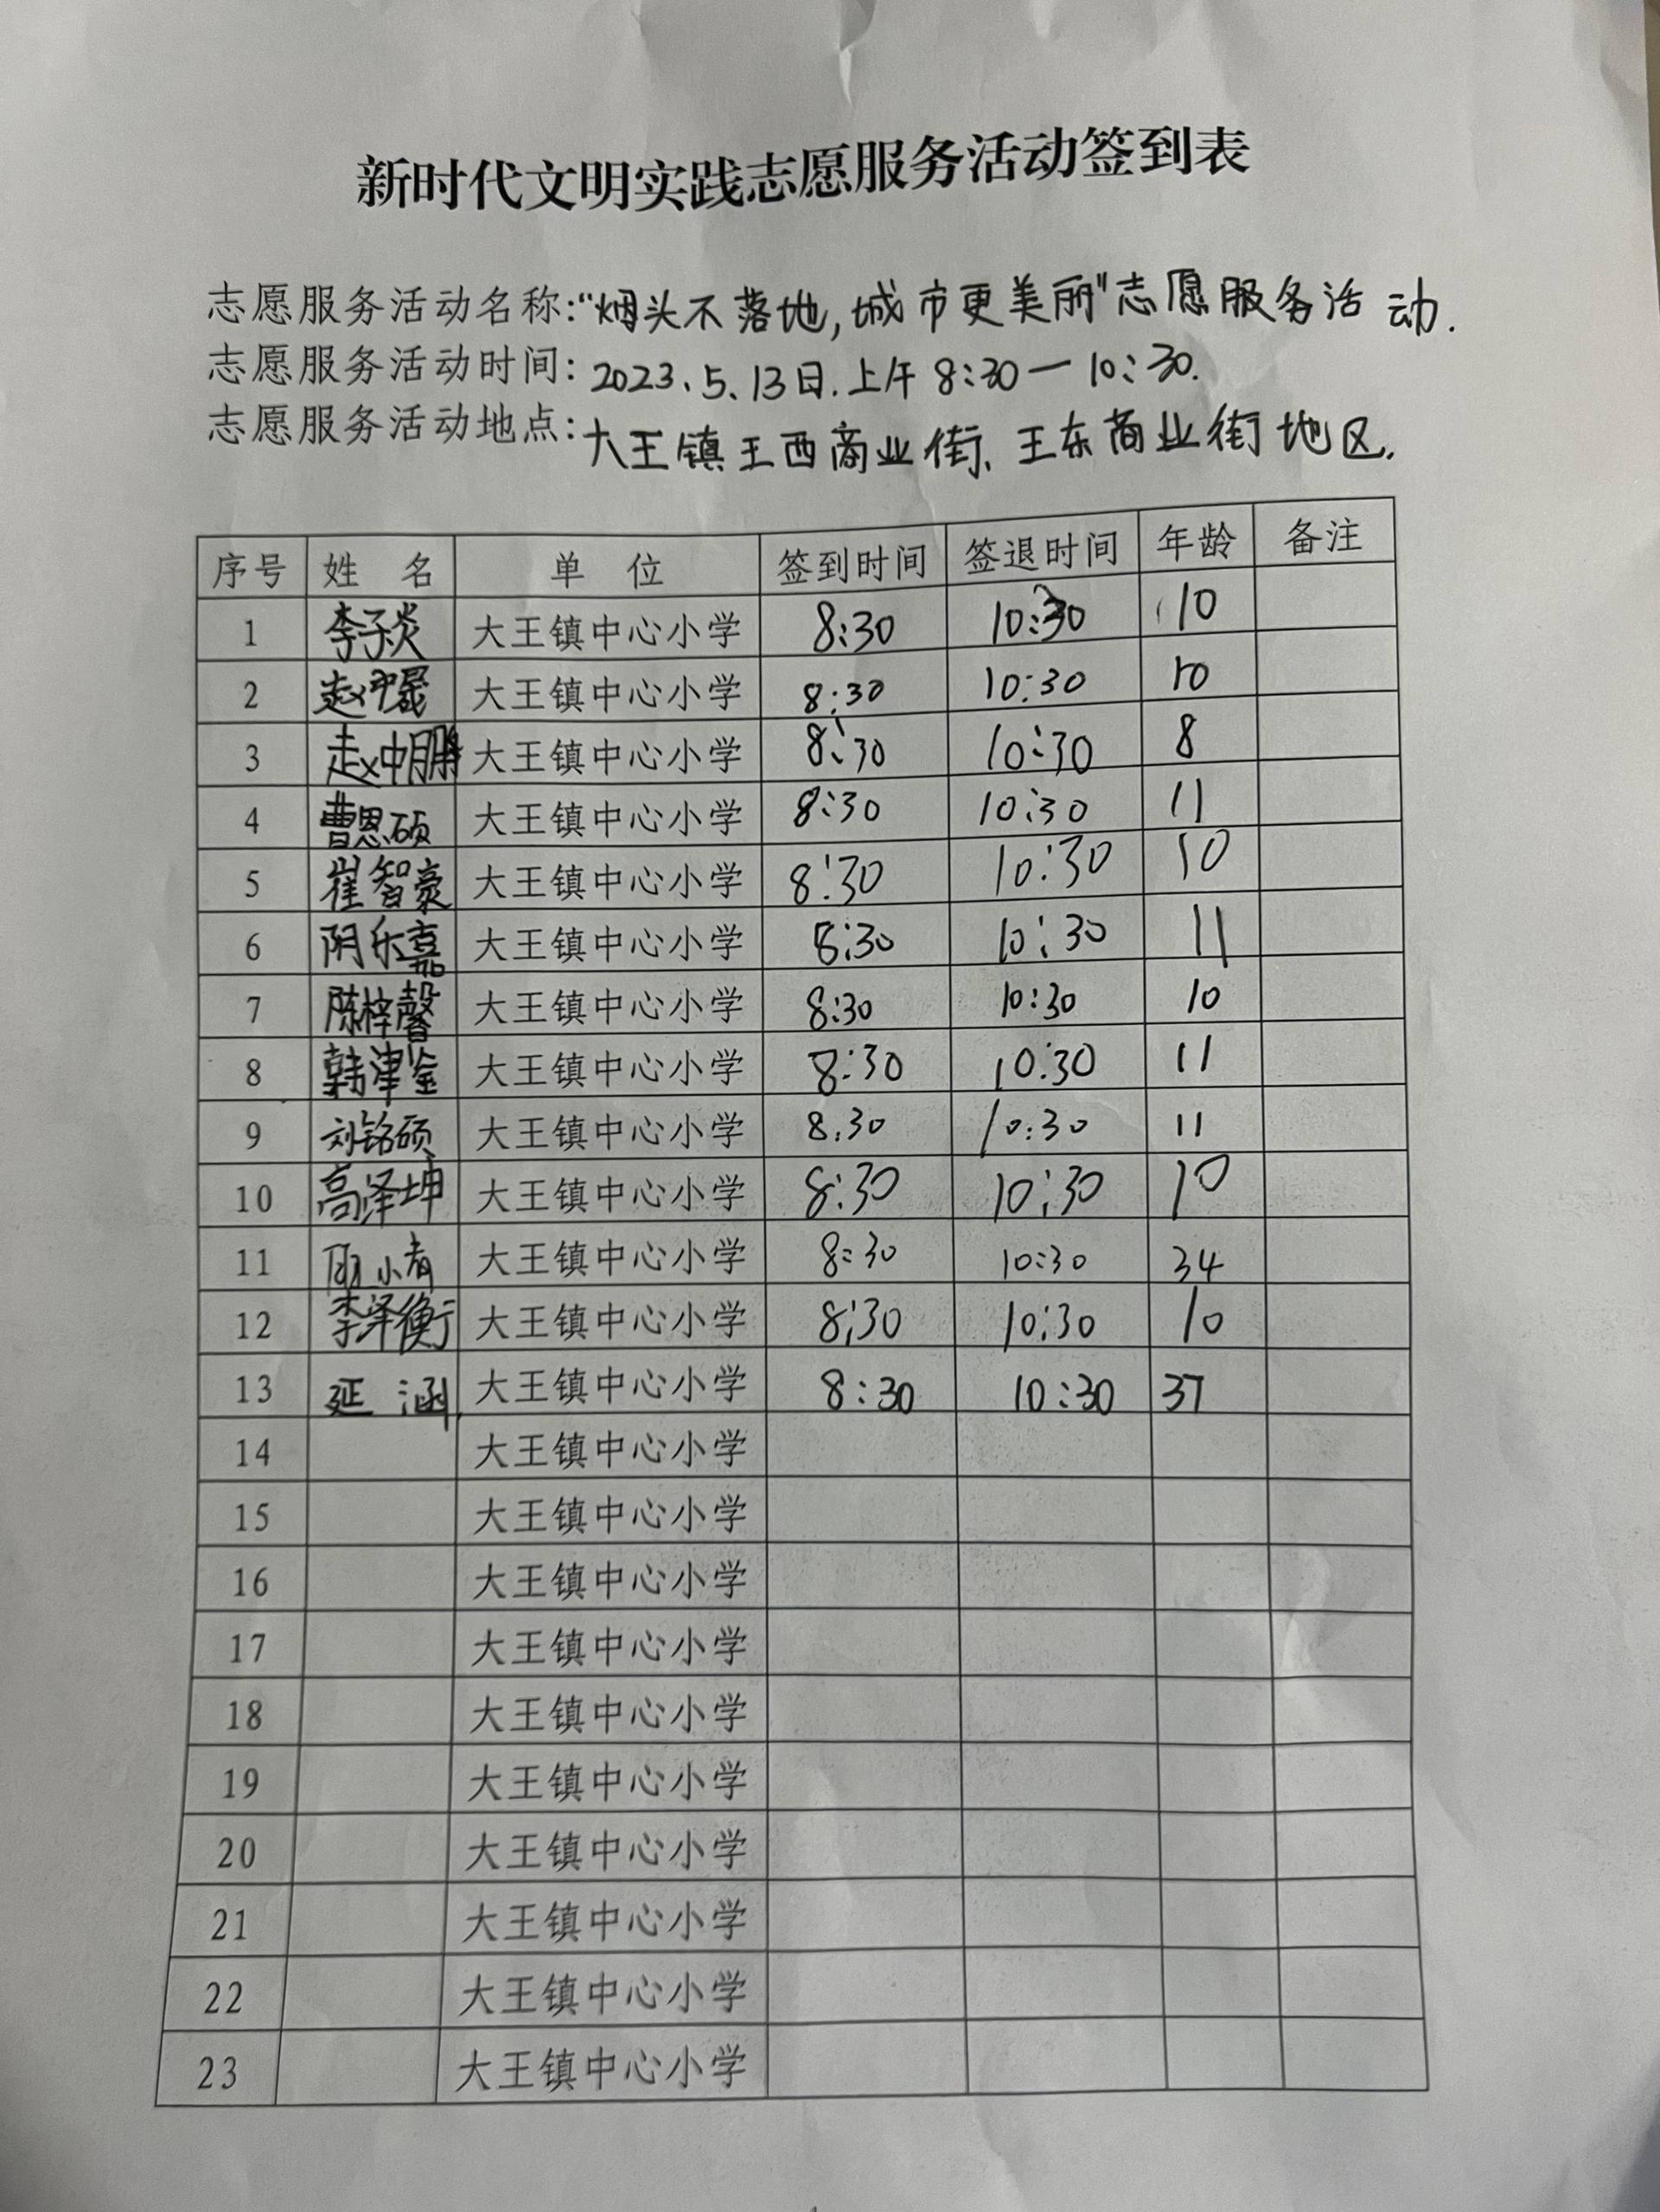 新时代文明实践志愿服务活动签到表
志愿服务活动名称:"烟头不落地,城市更美丽"志愿服务活动.
志愿服务活动时间: 2023、5、13日.上午 8:30一10:30.
志愿服务活动地点:大王镇王西商业街、王东商业街地区.
序号 姓 名 单 位 签到时间 签退时间 年龄 备注
1 李子炎 大王镇中心小学 8:30 10:30 10
2 赵 大王镇中心小学 8:30 10:30 10
3 赵 大王镇中心小学 8:30 10:30 8
4 曹恩硕 大王镇中心小学 8:30 10:30 11
5 崔智豪 大王镇中心小学 8:30 10:30 10
6 阴乐熹 大王镇中心小学 8:30 10:30 11
7 陈梓馨 大王镇中心小学 8:30 10:30 10
8 韩津鉴 大王镇中心小学 8:30 10:30 11
9 刘铭硕 大王镇中心小学 8:30 10:30 11
10 高泽坤 大王镇中心小学 8:30 10:30 10
11 大王镇中心小学 8:30 10:30 34
12 李泽衡 大王镇中心小学 8:30 10:30 10
13 延 涵 大王镇中心小学 8:30 10:30 37
14 大王镇中心小学
15 大王镇中心小学
16 大王镇中心小学
17 大王镇中心小学
18 大王镇中心小学
19 大王镇中心小学
20 大王镇中心小学
21 大王镇中心小学
22 大王镇中心小学
23 大王镇中心小学